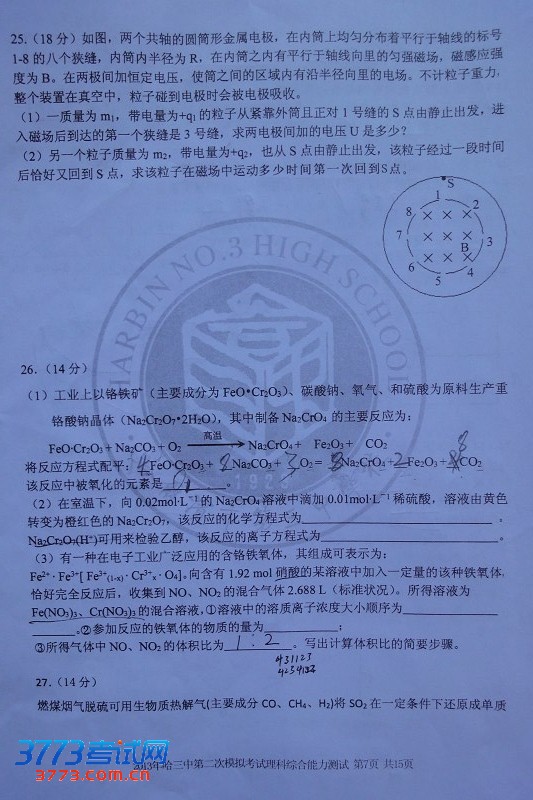 25.(18 分)如图，两个共轴的圆筒形金属电极，在内筒上均匀分布着平行于轴线的标号
1-8 的八个狭缝，内筒内半径为 R，在内筒之内有平行于轴线向里的匀强磁场，磁感应强
度为 B。在两极间加恒定电压，使筒之间的区域内有沿半径向里的电场。不计粒子重力，
整个装置在真空中，粒子碰到电极时会被电极吸收。
（1）一质量为 m₁，带电量为+q₁的粒子从紧靠外筒且正对 1 号缝的 S 点由静止出发，进
入磁场后到达的第一个狭缝是 3 号缝，求两电极间加的电压 U 是多少？
（2）另一个粒子质量为 m₂，带电量为+q₂，也从 S 点由静止出发，该粒子经过一段时间
后恰好又回到 S 点，求该粒子在磁场中运动多少时间第一次回到S点。
S
1
8 × × × 2
7 × × × 3
B
6 × × × 4
5
HARBIN NO.3 HIGH SCHOOL
26.（14 分）
（1）工业上以铬铁矿（主要成分为 FeO•Cr₂O₃）、碳酸钠、氧气、和硫酸为原料生产重
铬酸钠晶体（Na₂Cr₂O₇•2H₂O），其中制备 Na₂CrO₄ 的主要反应为：
高温
FeO·Cr₂O₃ + Na₂CO₃ + O₂ ⟶ Na₂CrO₄ + Fe₂O₃ + CO₂
将反应方程式配平：4 FeO·Cr₂O₃ + Na₂CO₃ + O₂ = 8 Na₂CrO₄ + 2 Fe₂O₃ + 8 CO₂
该反应中被氧化的元素是 。
（2）在室温下，向 0.02mol·L⁻¹ 的 Na₂CrO₄ 溶液中滴加 0.01mol·L⁻¹ 稀硫酸，溶液由黄色
转变为橙红色的 Na₂Cr₂O₇，该反应的化学方程式为 。
Na₂Cr₂O₇(H⁺)可用来检验乙醇，该反应的离子方程式为 。
（3）有一种在电子工业广泛应用的含铬铁氧体，其组成可表示为：
Fe²⁺ · Fe³⁺[ Fe³⁺₍₁₋ₓ₎ · Cr³⁺ₓ · O₄]。向含有 1.92 mol 硝酸的某溶液中加入一定量的该种铁氧体，
恰好完全反应后，收集到 NO、NO₂的混合气体 2.688 L（标准状况）。所得溶液为
Fe(NO₃)₃、Cr(NO₃)₃的混合溶液，①溶液中的溶质离子浓度大小顺序为
。②参加反应的铁氧体的物质的量为 ；
③所得气体中 NO、NO₂的体积比为 1:2 。写出计算体积比的简要步骤。
431123
27.（14 分）
燃煤烟气脱硫可用生物质热解气(主要成分 CO、CH₄、H₂)将 SO₂ 在一定条件下还原成单质
3773考试网
3773.com.cn
2013年哈三中第二次模拟考试理科综合能力测试 第7页 共15页